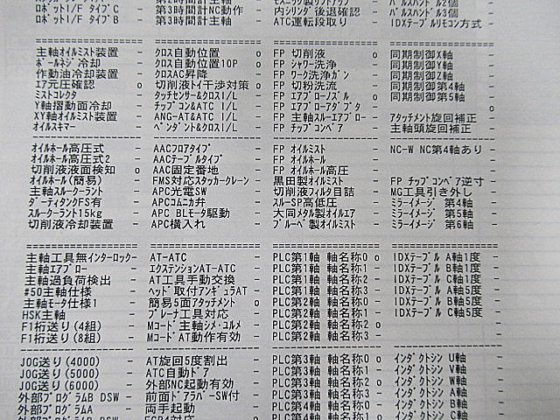 ロボットI/F タイプC - 第2時間計主軸 - モスニック製リフトアップ - パルスハンドル2個 -
ロボットI/F タイプB - 第3時間計NC動作 - 内シリンダ後退確認 - パルスハンドル3個 -
第3時間計主軸 - ATC運転段取り - IDXテーブルリモコン方式 -
主軸オイルミスト装置 - クロス自動位置 o FP 切削液 o 同期制御X軸 -
ボールネジ冷却 - クロス自動位置10P o FP シャワー洗浄 - 同期制御Y軸 -
作動油冷却装置 - クロスAC昇降 - FP ワーク洗浄ガン - 同期制御Z軸 -
エア元圧確認 o 切削液トイ干渉対策 o FP 切粉洗流 - 同期制御第4軸 -
ミストコレクタ - タッチセンサ&クロスI/L - FP エアブローノズル o 同期制御第5軸 -
Y軸摺動面冷却 - チップコン&ATC I/L - FP エアブローアダプタ o
XY軸オイルミスト装置 - ANG-AT&ATC I/L - FP 主軸スルーエアブロー - アタッチメント旋回補正 -
オイルスキマー - ペンダント&クロスI/L - FP チップコンベア - 主軸頭旋回補正 -
オイルホール高圧式 - AACフロアタイプ - FP オイルミスト - NC-W NC第4軸あり -
オイルホール高圧式2 - AACテーブルタイプ - FP オイルホール -
切削液液面検知 o AAC固定番地 - FP オイルホール高圧 -
オイルホール(簡易) - FMS対応スタッカークレーン - 黒田製オイルミスト - FP チップコンベア逆寸 -
主軸スルークーラント - APC光電SW - 切削液フィルタ目詰 - MG工具引き外し -
ダーティタンクFS有 - APCコムニカ弁 - スルーSP高低圧 - ミラーイメージ 第4軸 -
スルークーラント15kg - APC BLモータ駆動 - 大同メタル製オイルエア - ミラーイメージ 第5軸 -
切削液冷却装置 - APC横入れ - ブルーベ製オイルミスト - ミラーイメージ 第6軸 -
主軸工具無インターロック - AT-ATC - PLC第1軸 軸名称0 o IDXテーブル A軸1度 -
主軸エアブロー - エクステンションAT-ATC - PLC第1軸 軸名称1 - IDXテーブル B軸1度 -
主軸過負荷検出 - AT工具手動交換 - PLC第1軸 軸名称2 - IDXテーブル C軸1度 -
#50主軸仕様 - ヘッド取付アンギュラAT - PLC第1軸 軸名称3 - IDXテーブル A軸5度 -
主軸モータ仕様1 - 簡易5面アタッチメント o PLC第2軸 軸名称0 - IDXテーブル B軸5度 -
HSK主軸 - プレーナ工具対応 - PLC第2軸 軸名称1 - IDXテーブル C軸5度 -
F1桁送り(4組) - Mコード主軸シメ・ユルメ - PLC第2軸 軸名称2 o
F1桁送り(8組) - Mコード AT動作有効 - PLC第2軸 軸名称3 -
JOG送り(4000) - AT旋回5度割出 - PLC第3軸 軸名称0 o インダクトシン U軸
JOG送り(5000) - ATC自動ドア - PLC第3軸 軸名称1 - インダクトシン V軸
JOG送り(6000) - 外部NC起動有効 - PLC第3軸 軸名称2 - インダクトシン W軸
外部プログラムB DSW - 前面ドアバーSW付 - PLC第3軸 軸名称3 - インダクトシン A軸
外部プログラムA - 両手起動 - PLC第4軸 軸名称0 o インダクトシン B軸
PLC第4軸 軸名称1